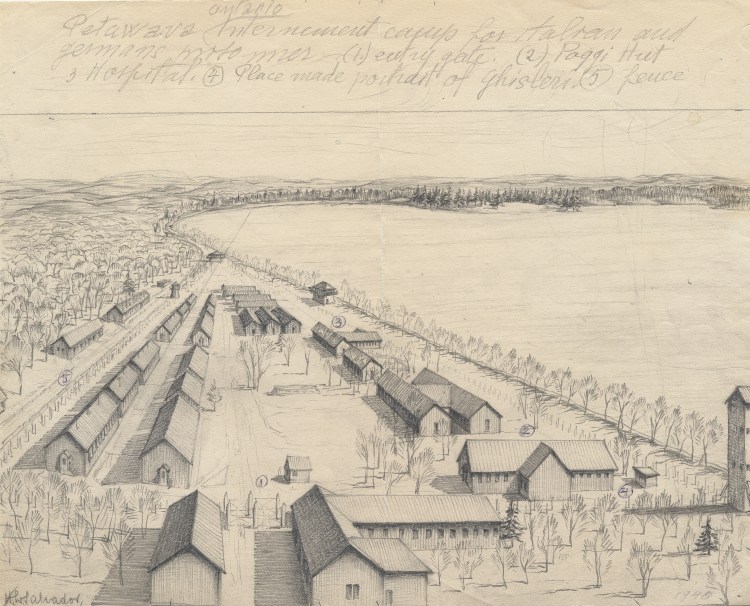 Petawawa Internement camp for Italian and
germans
(1) entry gate. (2) Poggi Hut
3 Hospital. (4) Place made portrait of Ghislieri (5) fence
3
5
1
2
4
1940